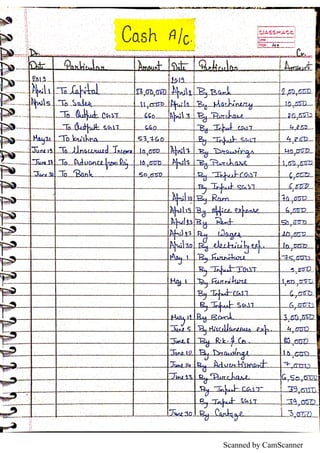 Cash A/c.
CLASSMATE
Dr. Cr.
Date Particulars Amount Date Particulars Amount
2019 2019
April 1 To Capital By Bank
April 5 To Sales 11,000 By Machinery 10,000
To Output CGST 660 April 3 By Purchase
To Output SGST 660 By Input CGST 4,200
May 21 To Krishna 53,760 By Input SGST 4,200
June 13 To Unaccrued Income 10,000 By Drawings 40,000
To Advance from Raj 10,000 By Purchase
June 30 To Bank 50,000 By Input CGST 6,000
By Input SGST 6,000
April 10 By Ram 70,000
April 15 By office expense 6,000
April 23 By Rent 50,000
April 27 By Wages
April 30 By electricity exp. 10,000
May 1 By Furniture 75,000
By Input IGST 9,000
May 1 By Furniture 1,00,000
By Input CGST 6,000
By Input SGST 6,000
By Bank 3,00,000
June 5 By Miscellaneous exp. 4,000
June 8 By R.k. & Co. 80,000
June 10 By Drawings 10,000
By Advertisment 7,000
June 23 By Purchase 6,50,000
By Input CGST 39,000
By Input SGST 39,000
June 30 By Cartage 3,000
Scanned by CamScanner